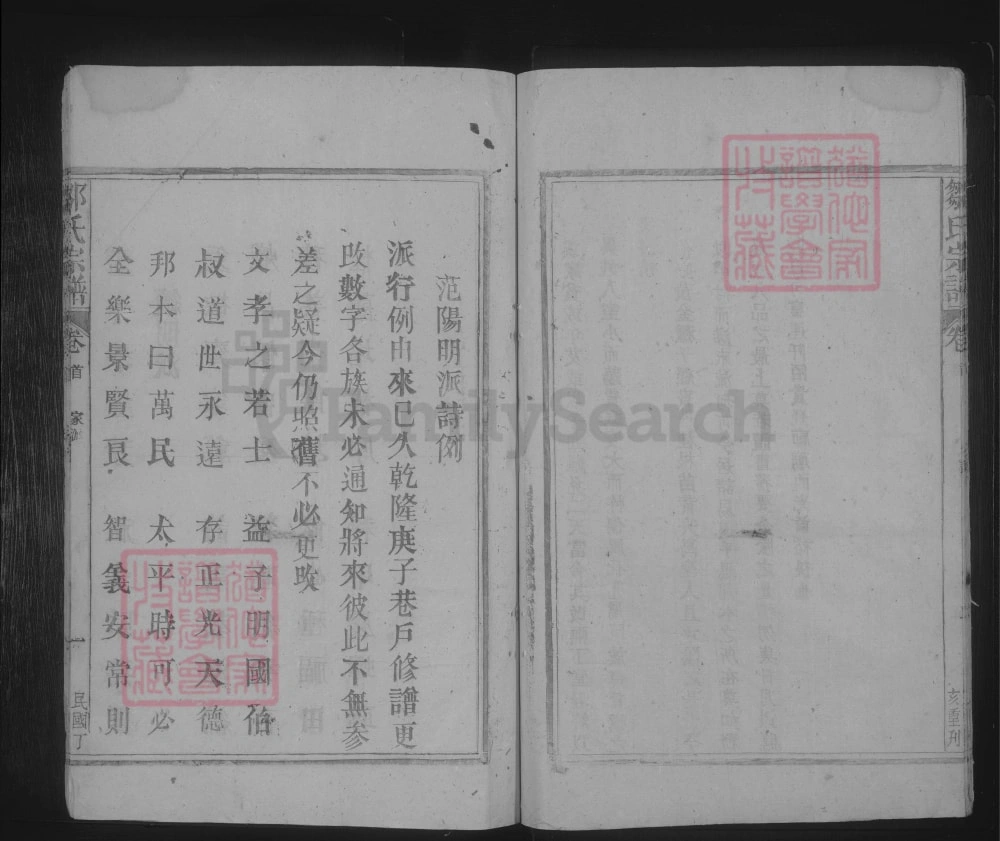 鄒氏宗譜
卷
亥重刋
范陽明派詩例
派行例由來已久乾隆庚子巷戶修譜更
改數字各族未必通知將來彼此不無参
差之疑今仍照舊不必更改
文孝之若士 益子明國伯
叔道世永遠 存正光天德
邦本曰萬民 太平時可必
全樂景賢良 智義安常則
鄒氏宗譜
卷首
一
民國丁
譜學會
特藏
譜學會
特藏
FamilySearch